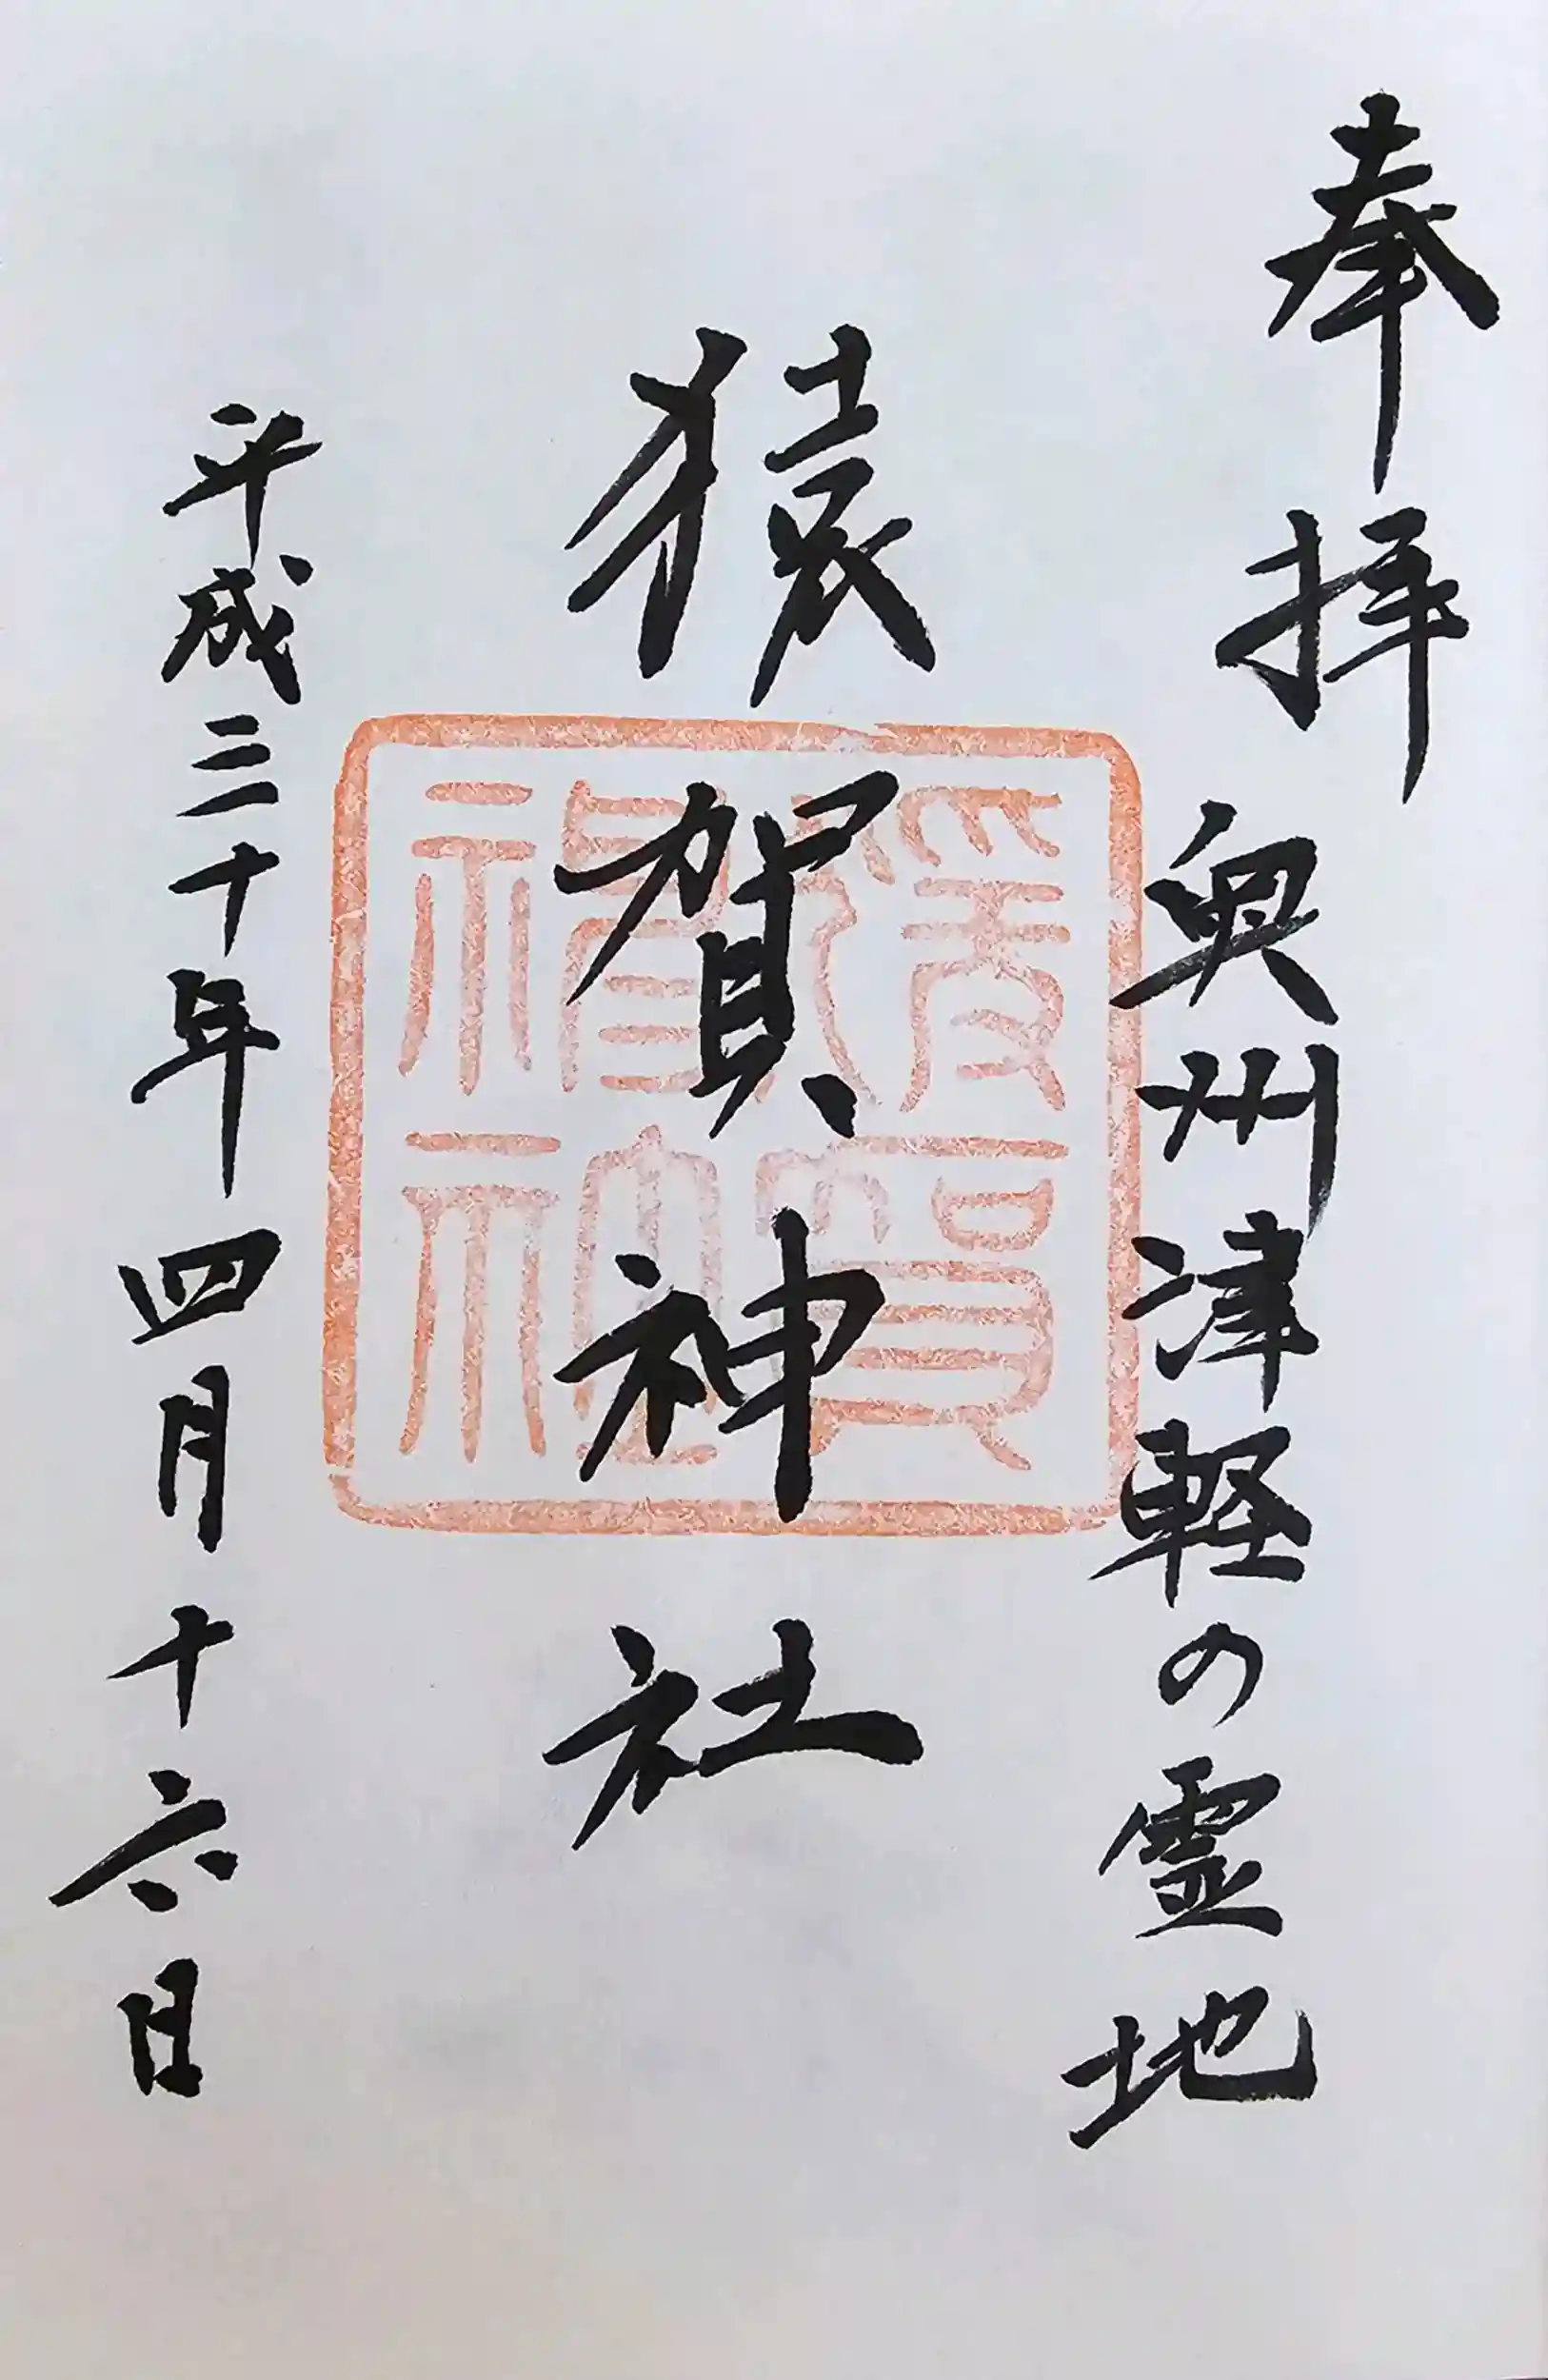 奉拝
奥州津軽の霊地
猿賀神社
猨賀神社
平成三十年四月十六日